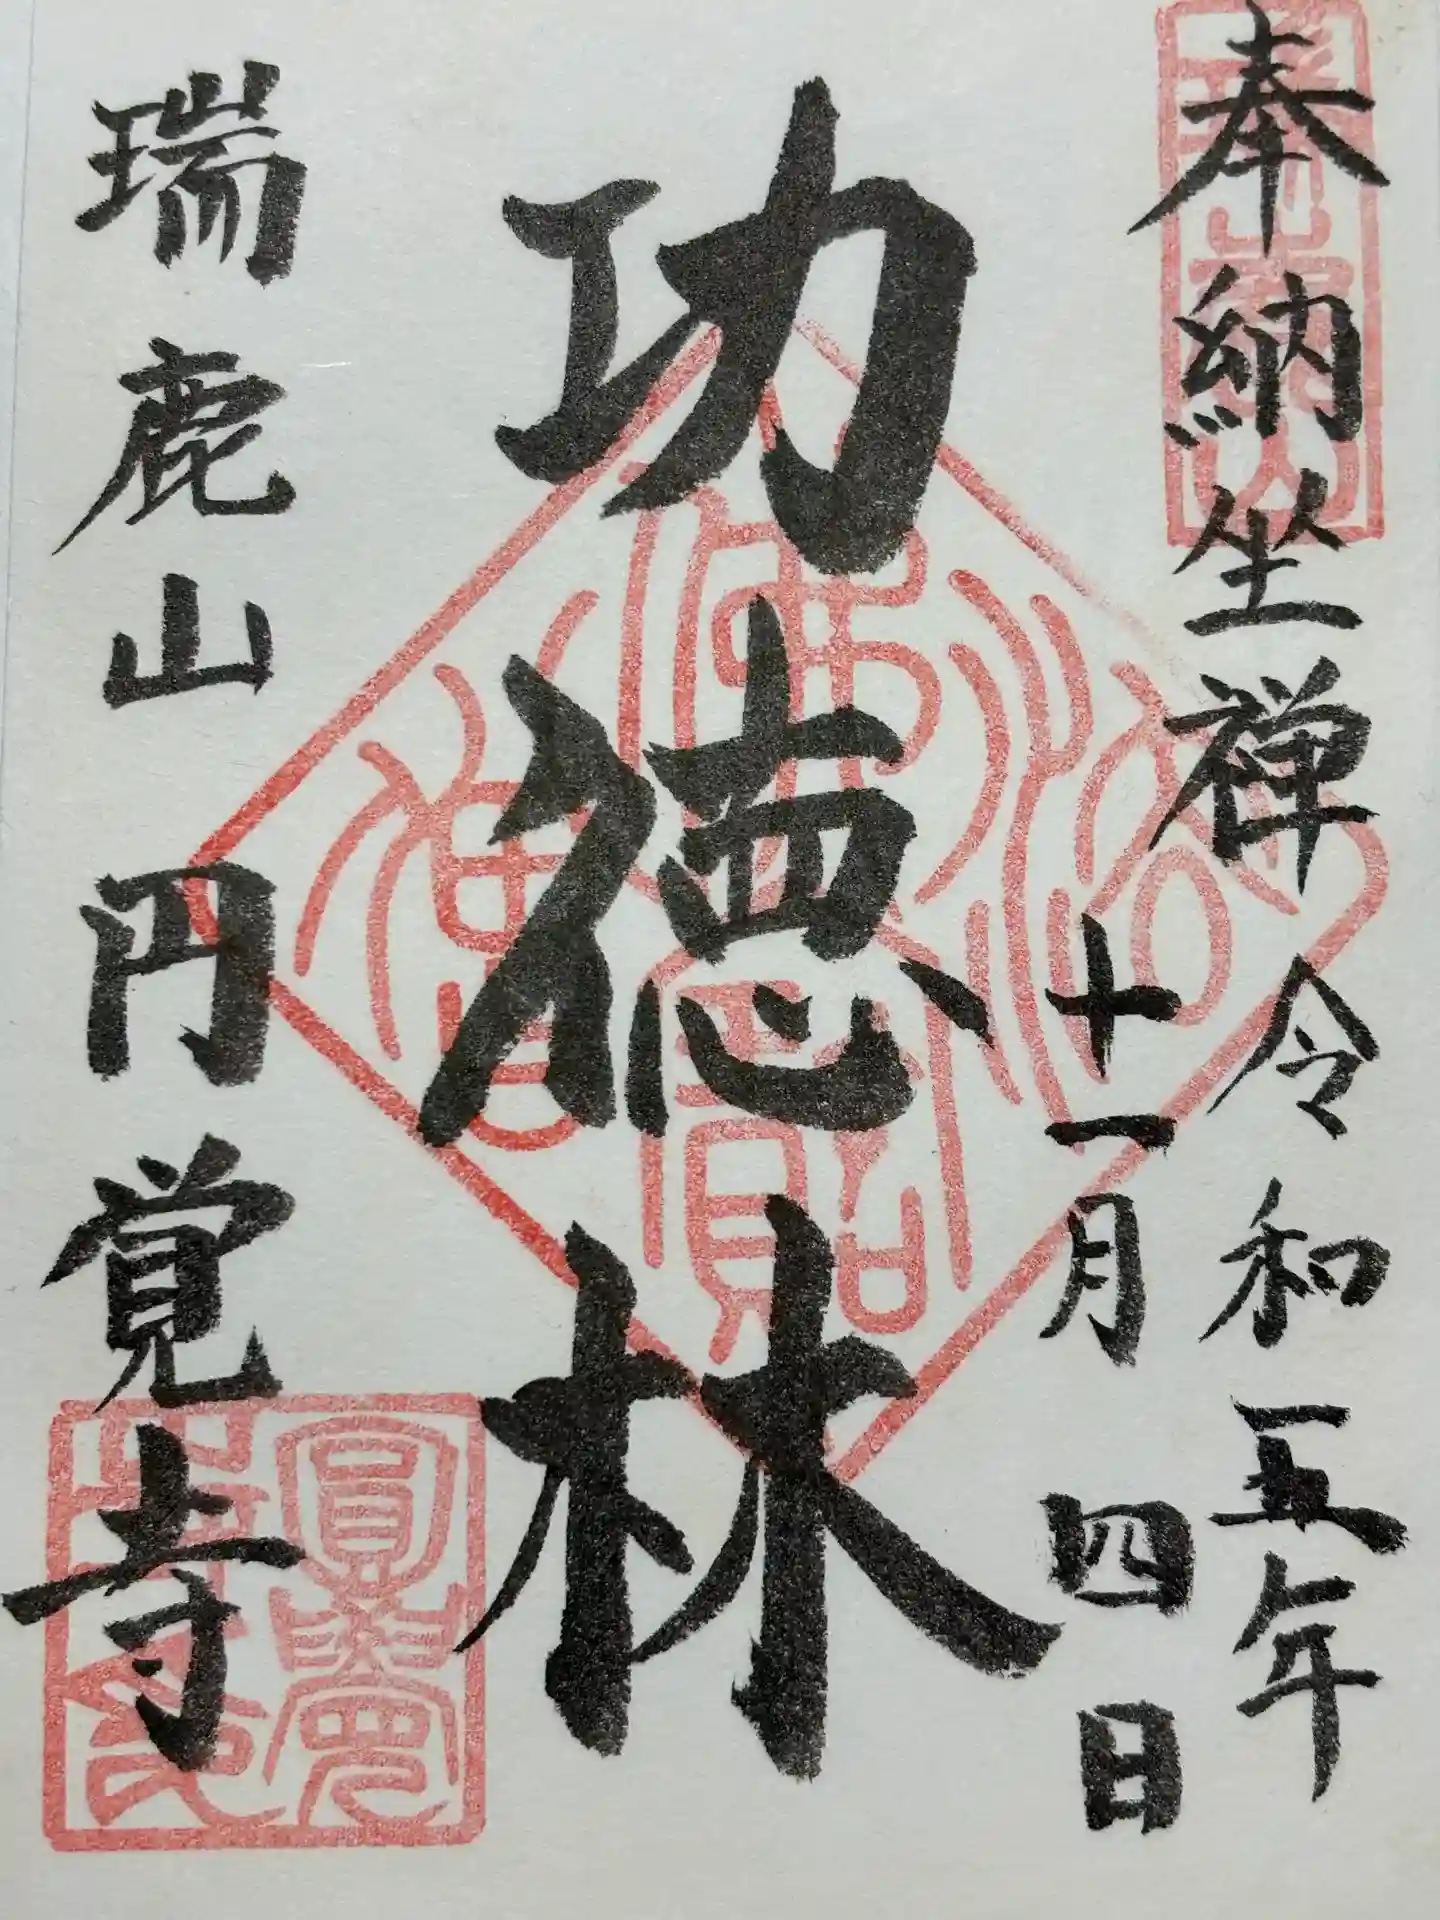 奉納坐禅
令和五年
十一月四日
功徳林
瑞鹿山円覚寺